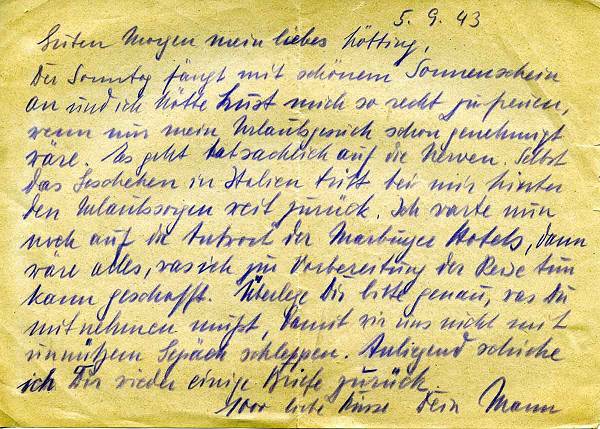 5. 9. 43
Guten Morgen mein liebes Kötting,
Der Sonntag fängt mit schönem Sonnenschein
an und ich hätte Lust mich so recht zu freuen,
wenn nur mein Urlaubsgesuch schon genehmigt
wäre. Es geht tatsächlich auf die Nerven. Selbst
das Geschehen in Italien tritt bei mir hinter
den Urlaubssorgen weit zurück. Ich warte nun
noch auf die Antwort der Marburger Hotels, dann
wäre alles, was ich zur Vorbereitung der Reise tun
kann geschafft. Überlege Dir bitte genau, was Du
mitnehmen mußt, damit wir uns nicht mit
unnützem Gepäck schleppen. Anliegend schicke
ich Dir wieder einige Briefe zurück.
1000 liebe Küsse Dein Mann